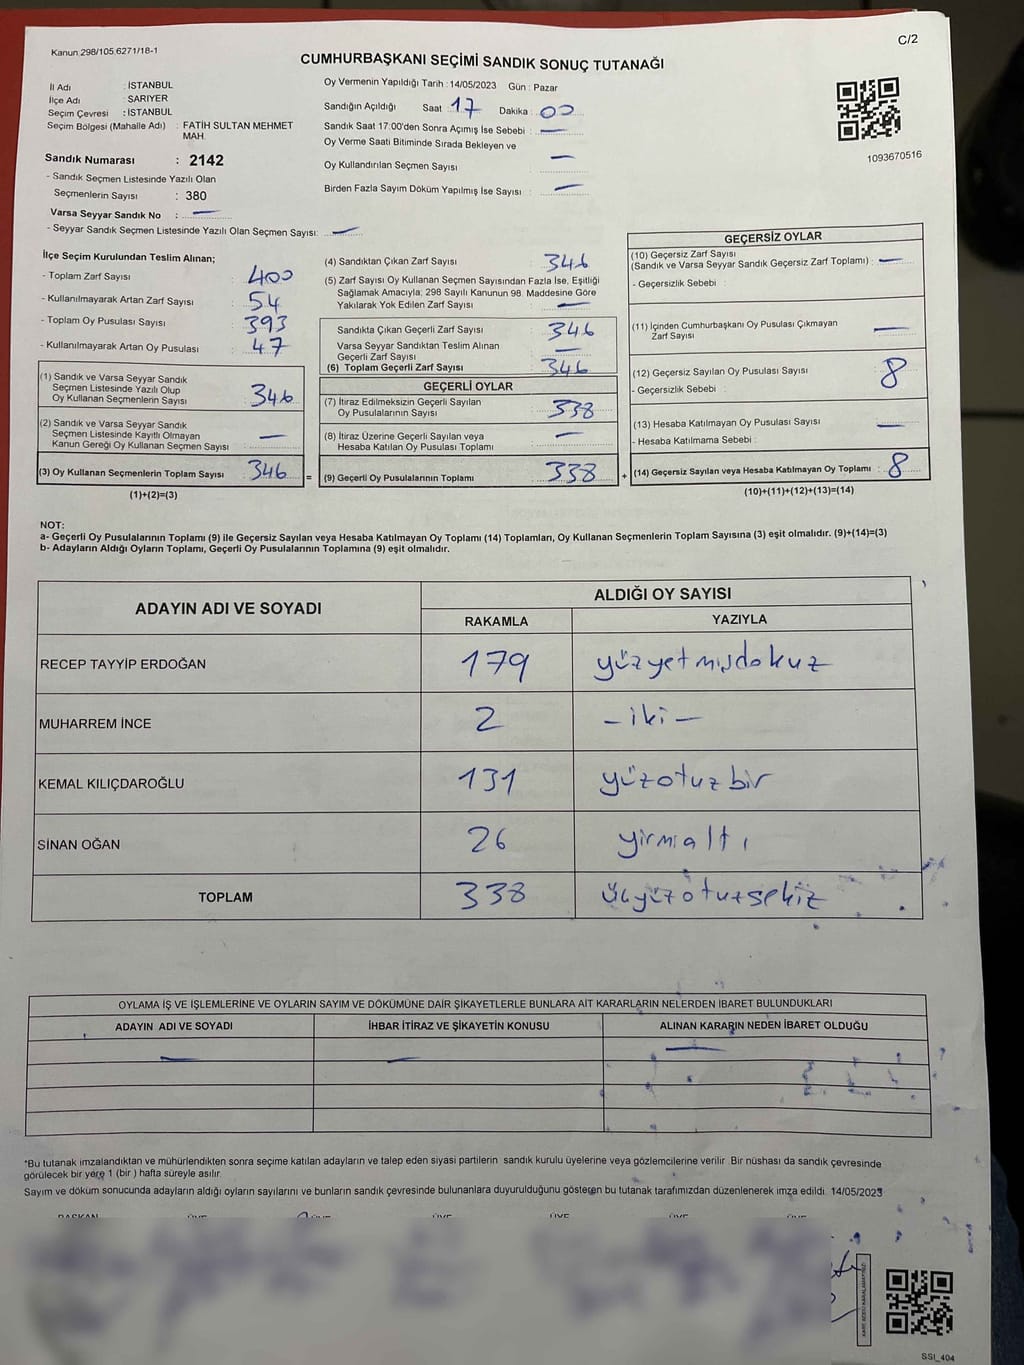 Kanun 298/105,6271/18-1
C/2
CUMHURBAŞKANI SEÇİMİ SANDIK SONUÇ TUTANAĞI
İl Adı : İSTANBUL
İlçe Adı : SARIYER
Seçim Çevresi : İSTANBUL
Seçim Bölgesi (Mahalle Adı) : FATİH SULTAN MEHMET
MAH.
Sandık Numarası : 2142
- Sandık Seçmen Listesinde Yazılı Olan
Seçmenlerin Sayısı : 380
Varsa Seyyar Sandık No : —
- Seyyar Sandık Seçmen Listesinde Yazılı Olan Seçmen Sayısı: —
Oy Vermenin Yapıldığı Tarih : 14/05/2023 Gün : Pazar
Sandığın Açıldığı Saat 17 Dakika : 00
Sandık Saat 17:00'den Sonra Açımış İse Sebebi : —
Oy Verme Saati Bitiminde Sırada Bekleyen ve
Oy Kullandırılan Seçmen Sayısı —
Birden Fazla Sayım Döküm Yapılmış İse Sayısı : —
1093670516
İlçe Seçim Kurulundan Teslim Alınan;
- Toplam Zarf Sayısı : 400
- Kullanılmayarak Artan Zarf Sayısı : 54
- Toplam Oy Pusulası Sayısı : 393
- Kullanılmayarak Artan Oy Pusulası : 47
(1) Sandık ve Varsa Seyyar Sandık
Seçmen Listesinde Yazılı Olup
Oy Kullanan Seçmenlerin Sayısı : 346
(2) Sandık ve Varsa Seyyar Sandık
Seçmen Listesinde Kayıtlı Olmayan
Kanun Gereği Oy Kullanan Seçmen Sayısı : —
(3) Oy Kullanan Seçmenlerin Toplam Sayısı : 346 =
(1)+(2)=(3)
(4) Sandıktan Çıkan Zarf Sayısı : 346
(5) Zarf Sayısı Oy Kullanan Seçmen Sayısından Fazla İse, Eşitliği
Sağlamak Amacıyla; 298 Sayılı Kanunun 98. Maddesine Göre
Yakılarak Yok Edilen Zarf Sayısı : —
Sandıkta Çıkan Geçerli Zarf Sayısı : 346
Varsa Seyyar Sandıktan Teslim Alınan
Geçerli Zarf Sayısı : —
(6) Toplam Geçerli Zarf Sayısı : 346
GEÇERLİ OYLAR
(7) İtiraz Edilmeksizin Geçerli Sayılan
Oy Pusulalarının Sayısı : 338
(8) İtiraz Üzerine Geçerli Sayılan veya
Hesaba Katılan Oy Pusulası Toplamı : —
(9) Geçerli Oy Pusulalarının Toplamı : 338 +
GEÇERSİZ OYLAR
(10) Geçersiz Zarf Sayısı
(Sandık ve Varsa Seyyar Sandık Geçersiz Zarf Toplamı) : —
- Geçersizlik Sebebi :
(11) İçinden Cumhurbaşkanı Oy Pusulası Çıkmayan
Zarf Sayısı : —
(12) Geçersiz Sayılan Oy Pusulası Sayısı : 8
- Geçersizlik Sebebi :
(13) Hesaba Katılmayan Oy Pusulası Sayısı : —
- Hesaba Katılmama Sebebi :
(14) Geçersiz Sayılan veya Hesaba Katılmayan Oy Toplamı : 8
(10)+(11)+(12)+(13)=(14)
NOT:
a- Geçerli Oy Pusulalarının Toplamı (9) ile Geçersiz Sayılan veya Hesaba Katılmayan Oy Toplamı (14) Toplamları, Oy Kullanan Seçmenlerin Toplam Sayısına (3) eşit olmalıdır. (9)+(14)=(3)
b- Adayların Aldığı Oyların Toplamı, Geçerli Oy Pusulalarının Toplamına (9) eşit olmalıdır.
ADAYIN ADI VE SOYADI ALDIĞI OY SAYISI
RAKAMLA YAZIYLA
RECEP TAYYİP ERDOĞAN 179 yüzyetmişdokuz
MUHARREM İNCE 2 – iki –
KEMAL KILIÇDAROĞLU 131 yüzotuzbir
SİNAN OĞAN 26 yirmialtı
TOPLAM 338 üçyüzotuzsekiz
OYLAMA İŞ VE İŞLEMLERİNE VE OYLARIN SAYIM VE DÖKÜMÜNE DAİR ŞİKAYETLERLE BUNLARA AİT KARARLARIN NELERDEN İBARET BULUNDUKLARI
ADAYIN ADI VE SOYADI İHBAR İTİRAZ VE ŞİKAYETİN KONUSU ALINAN KARARIN NEDEN İBARET OLDUĞU
— — —
*Bu tutanak imzalandıktan ve mühürlendikten sonra seçime katılan adayların ve talep eden siyasi partilerin sandık kurulu üyelerine veya gözlemcilerine verilir. Bir nüshası da sandık çevresinde
görülecek bir yere 1 (bir ) hafta süreyle asılır.
Sayım ve döküm sonucunda adayların aldığı oyların sayılarını ve bunların sandık çevresinde bulunanlara duyurulduğunu gösteren bu tutanak tarafımızdan düzenlenerek imza edildi. 14/05/2023
BAŞKAN ÜYE ÜYE ÜYE ÜYE ÜYE ÜYE
SSI_404